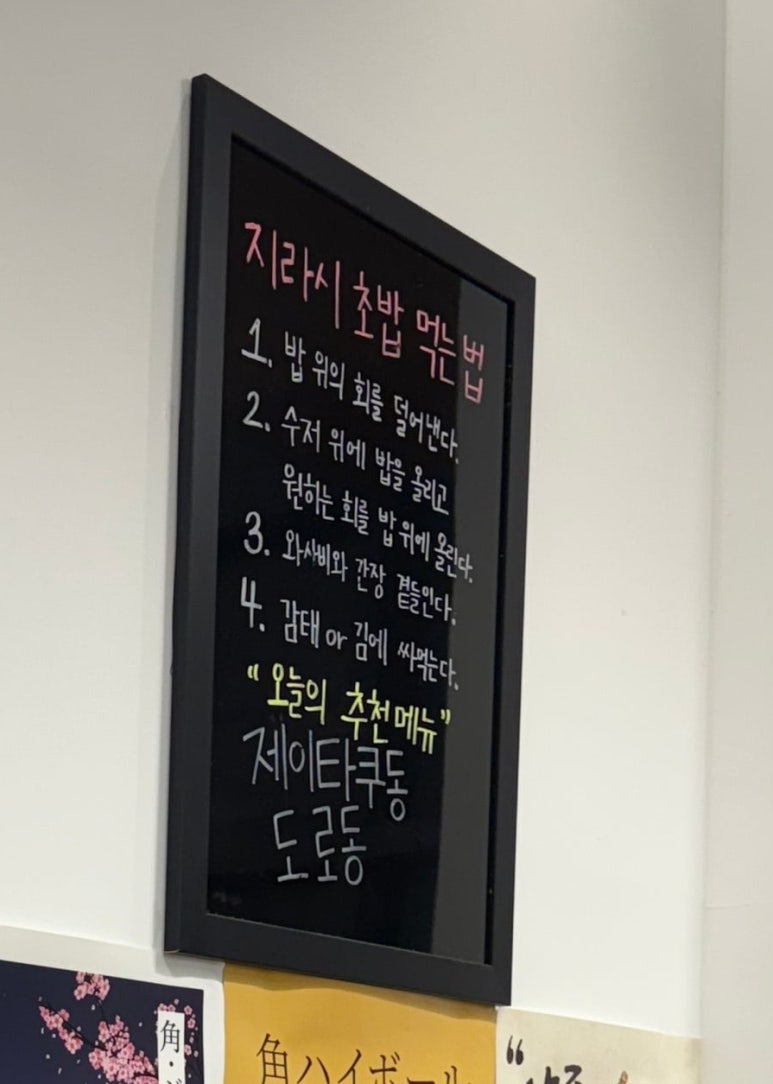 지라시 초밥 먹는 법
1. 밥 위의 회를 덜어낸다.
2. 수저 위에 밥을 올리고
원하는 회를 밥 위에 올린다.
3. 와사비와 간장 곁들인다.
4. 감태 or 김에 싸먹는다.
“오늘의 추천메뉴”
제이타쿠동
도로동
角・
角ハイボール
“